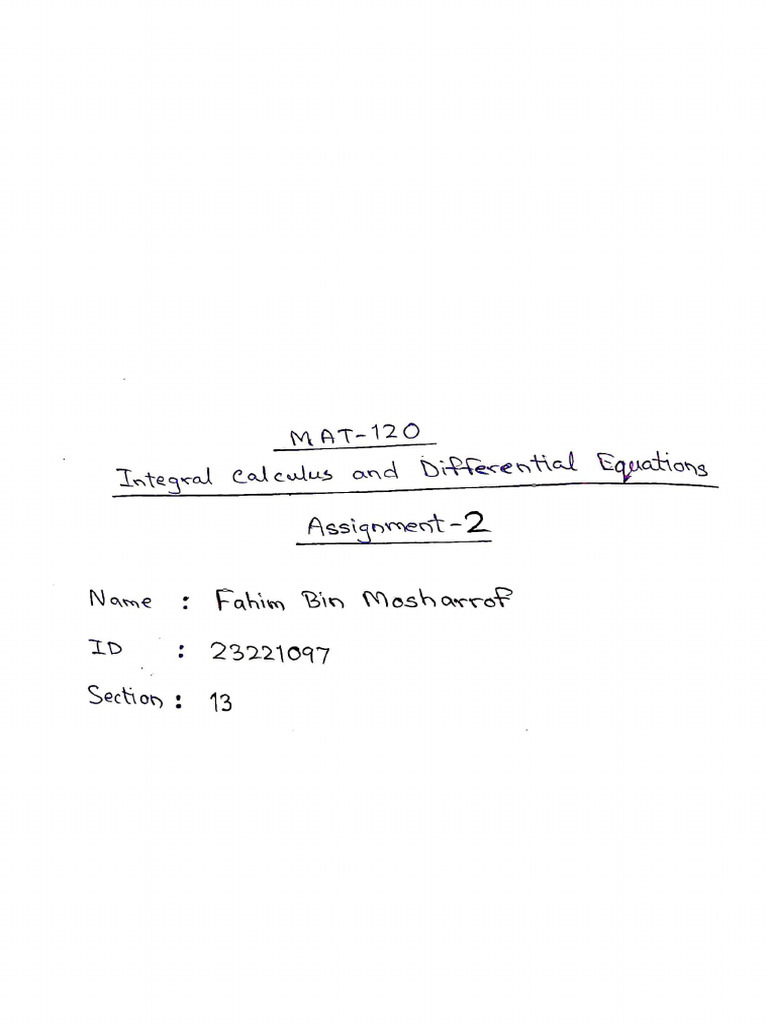 MAT-120
Integral Calculus and Differential Equations
Assignment-2
Name : Fahim Bin Mosharrof
ID : 23221097
Section : 13